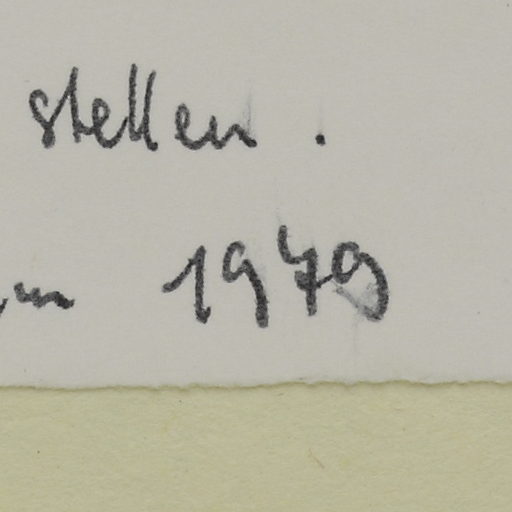 stellen.
1979